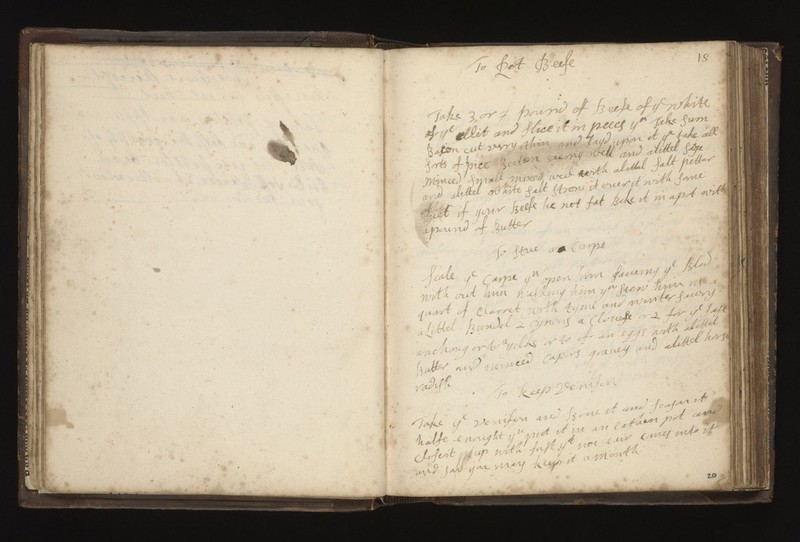 18
To Pot Beefe
Take 3 or 4 pound of Beefe of ye white
of ye and slice it in peces yn Take sum
Bacon cut verry thin and layd upon it yn take all
sorts of spice Beeten verry well and a littel
minced small mixed well with a littel salt petter
and a littel white salt strow it over it with some
suet if your Beefe be not fat Bake it in a pot with
a pound of Butter
To stue a Carpe
scale ye Carpe yn open him saveing ye Blod
with out him yn stew him in a
quart of Clarret with tyme and winter savery
a littel Bundel 2 a Clove or 2 for ye last
anchovy or to yelks or to of an eggs with a littel
butter and minced Capers gravey and a littel horse
radish
To Keep Venison
Take ye Venison and Bone it and season it
halfe enought yn put it in an earthen pot and
close it up with past yt noe eair comes into it
and soe you may keep it a month
20